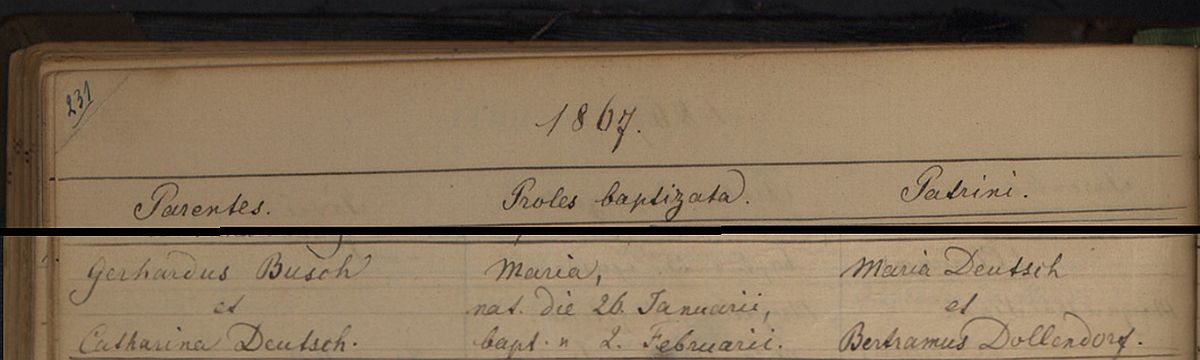 231
1867.
Parentes. Proles baptizata. Patrini.
Gerhardus Busch Maria, Maria Deutsch
et nat. die 26. Januarii, et
Catharina Deutsch. bapt. " 2. Februarii. Bertramus Dollendorf.